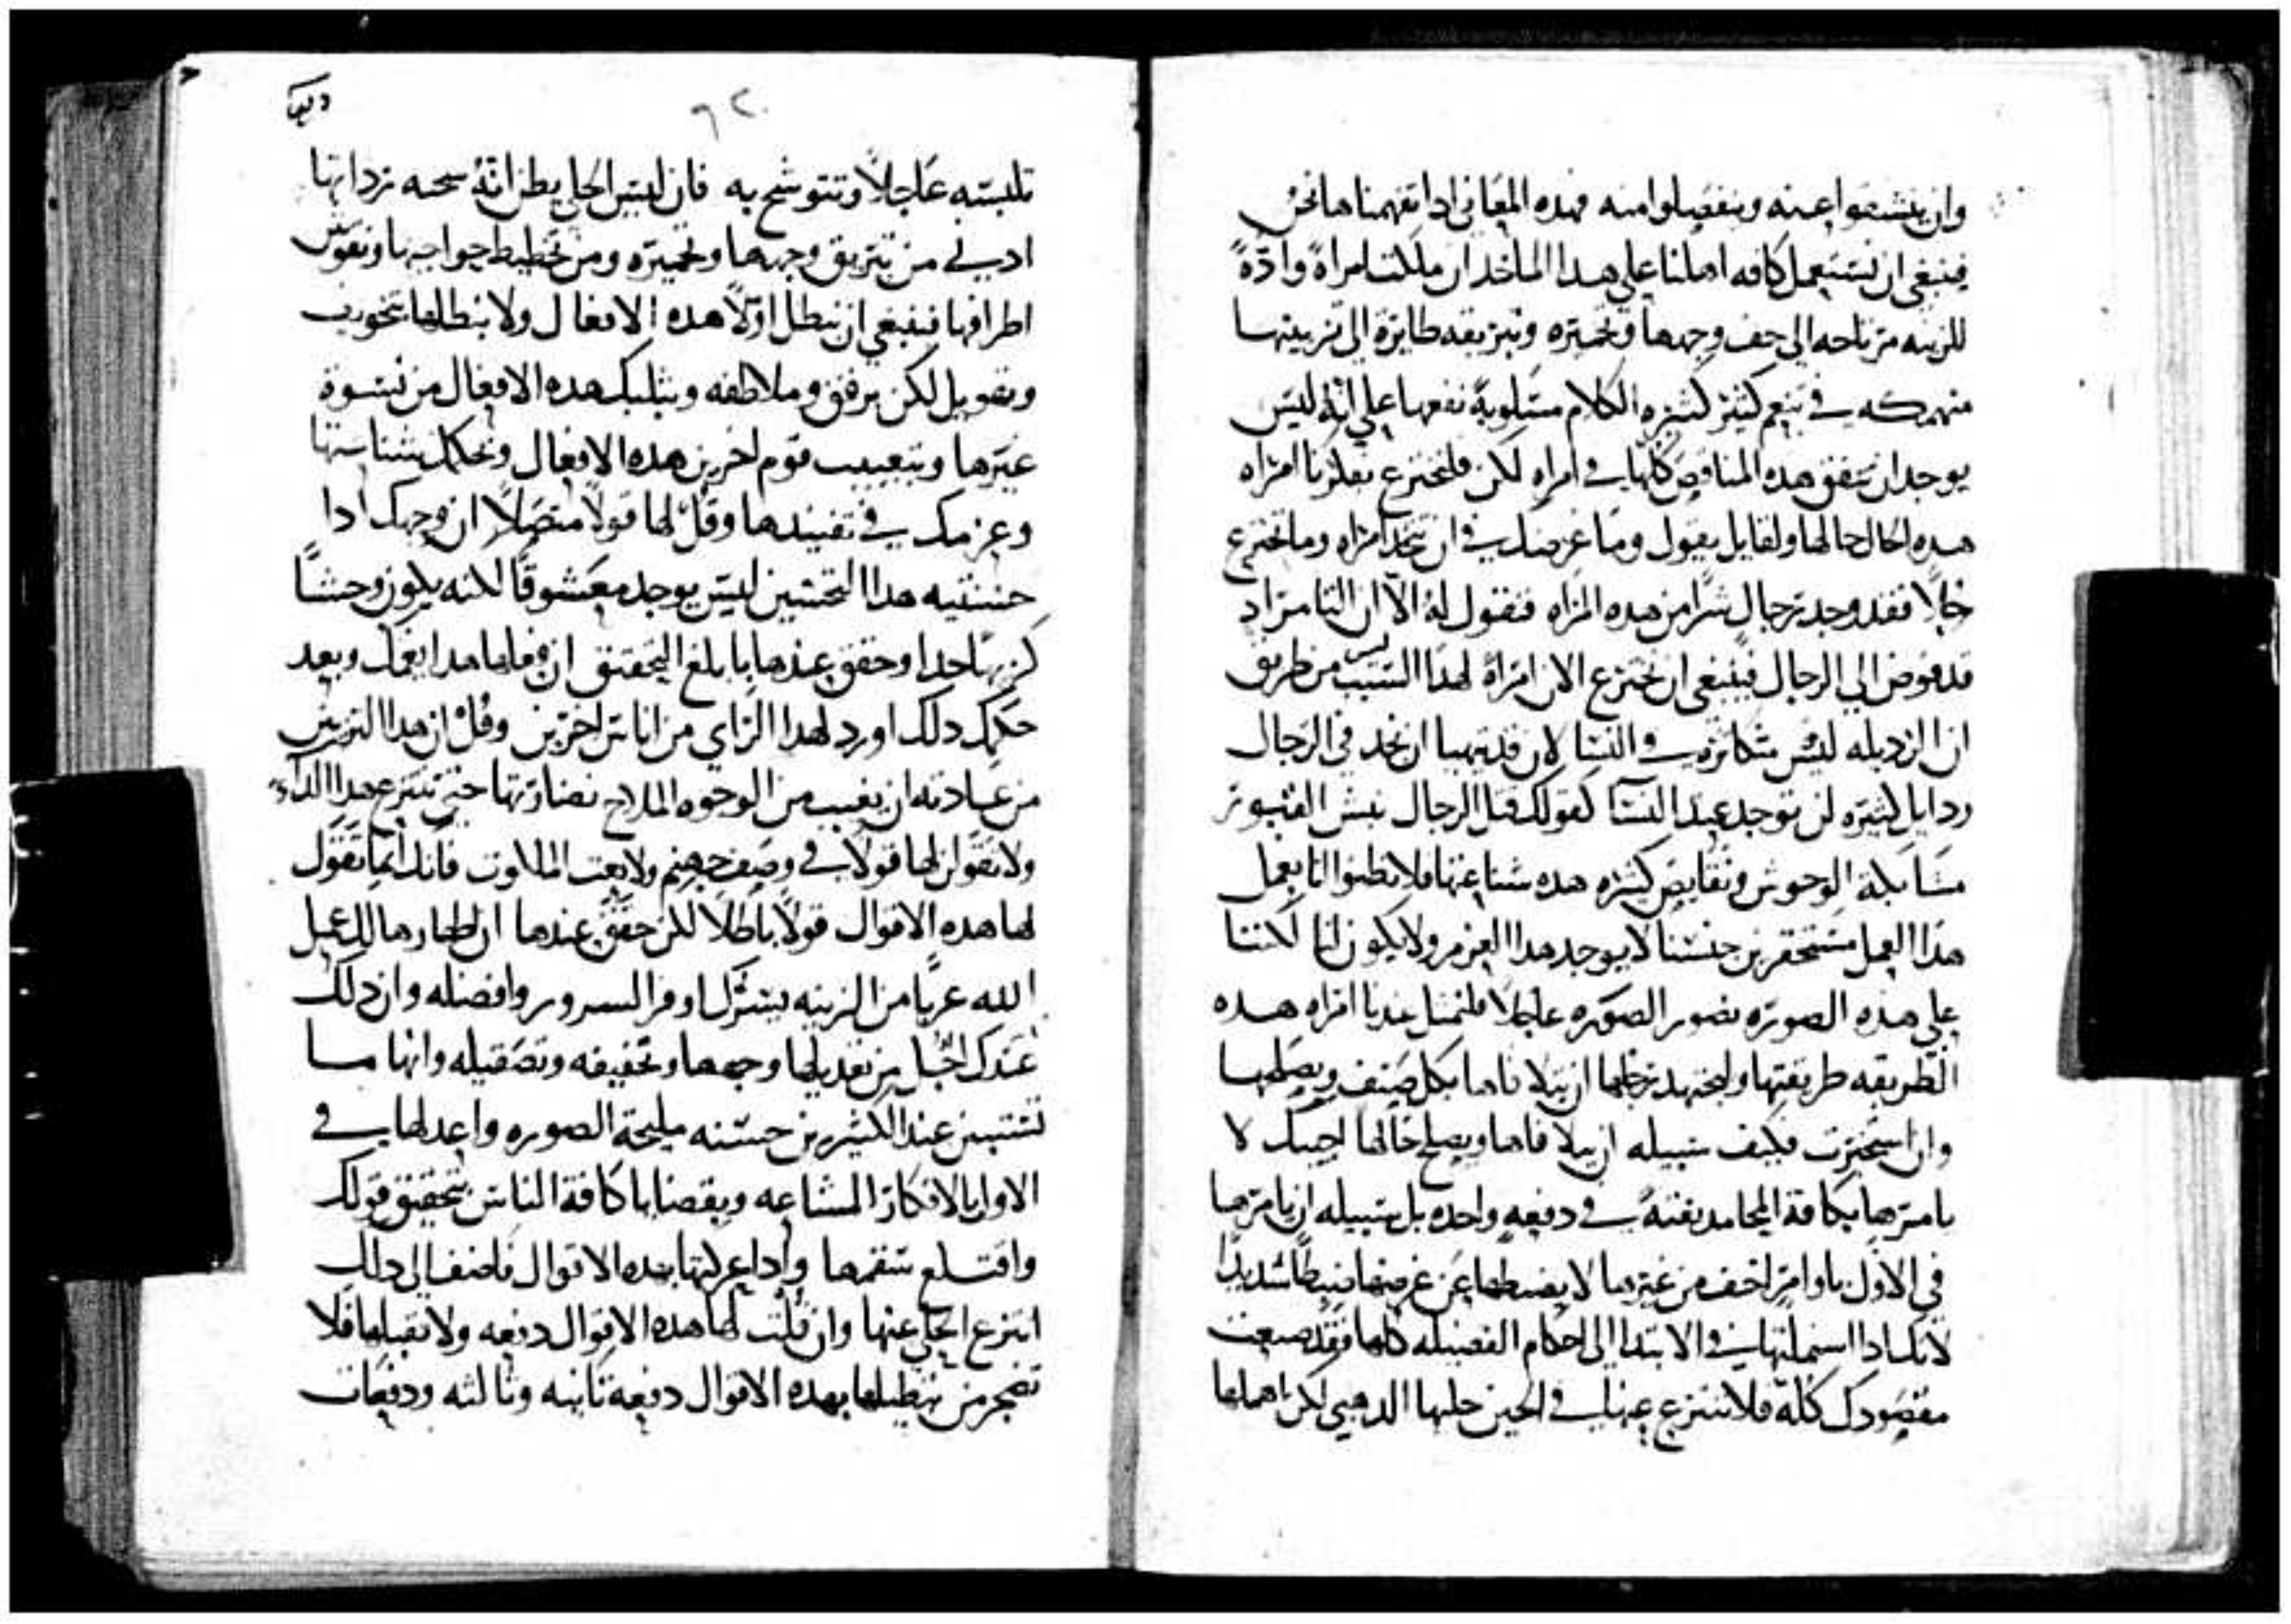 وان يشنعوا عنه وينفصلوا منه فهذه المعاني ادا تفهمناها نحن
فينبغي ان نستعمل كافه اهلنا علي هدا الماخد ان ملكت امراةً وادّةً
للزينه مرتاحه الي حف وجهها وتحميره وتبزيقه طايرة الي تزيينها
منهمكه في تنعم كثير كثيره الكلام مسلوبةً نفعها علي انه ليس
يوجد ان تتفق هده المناقص كلها في امراه لكن فلنخترع بفكرنا امراه
هده الحال حالها ولقايل يقول وما غرضك في ان تتخد امراه وما تخترع
رجلا فقد وجد رجال شرا من هده المراه فنقول له الا ان التامر اد
قد فوض الي الرجال فينبغي ان نخترع الان امراةً لهدا السبب ليس من طريق
ان الرديله ليس متكاثره في النسا لان قد يتهيا ان نجد في الرجال
ردايل كثيره لن توجد عند النسآ كقولك قتل الرجال نبش القبور
مسابكة الوحوش ونقايص كثيره هده شناعتها فلا تظنوا انا نعمل
هدا العمل مستحقرين جنسنا لا يوجد هدا العزم ولا يكون لنا لكننا
علي هده الصوره نصور الصوره عاجلا فلنمثل عندنا امراه هده
الطريقه طريقتها وليجتهد رجلها ان يتلافاها بكل صنف ويصلحها
وان استخبرت فكيف سبيله ان يتلافاها ويصلح حالها اجبتك لا
يامرها بكافة المحامد بغتةً في دفعه واحده بل سبيله ان يامرها
في الاول باوامر اخف من غيرها لا يضبطها عن غرضها ضبطا شديدا
لانك ادا استملتها في الابتدا الي احكام الفضيله كلها فقد ضيعت
مقصودك كله فلا تنتزع عنها في الحين حليها الدهبي لكن اهملها
٩٢
تلبسه عاجلاً وتتوشح به فان لبس الحلي يظن انه سحه ردانها
ادني من تزيق وجهها وتحميره ومن تخطيط حواجبها وتقويس
اطرافها فينبغي ان نبطل اولاً هده الافعال ولا نبطلها بتخويف
وتهويل لكن برفق وملاطفه وبثلبك هده الافعال من نسوة
غيرها وبتعييب قوم اخرين هده الافعال وبحكمك بشناستها
وعزمك في تفنيدها وقل لها قولاً متصلاً ان وجهك ادا
حسنتيه هدا التحسين ليس يوجد معشوقا لكنه يكون وحشاً
كريهاً جدا وحقق عندها بابلغ التحقيق ان فعلها هدا يغمك وبعد
حكمك دلك اورد لهدا الراي من اناس اخرين وقل ان هدا التزيين
من عادته ان يغيب من الوجوه الملاح نضارتها حتي تنتزع هدا الداء
ولا تقولن لها قولاً في وصف جهنم ولا نعت الملكوت فانك انما تقول
لها هده الاقوال قولاً باطلاً لكن حقق عندها ان اظهارها لك عمل
الله عريا من الزينه يسرك اوفر السرور وافضله وان دلك
عندك اجل من تعديلها وجهها وتحفيفه وتصقيله وانها ما
تستبين عند الكثيرين حسنه مليحة الصوره واعدلها في
الاول بالافكار المشاعه وبقضايا كافة الناس بتحقيق قولك
واقتلع سقمها وادا عركتها بهده الاقوال فاضف الي دلك
انتزع الحلي عنها وان قلت لها هده الاقوال دفعه ولا تقبلها فلا
تضجر من تبطيلها بهده الاقوال دفعة ثانيه وثالثه ودفعات